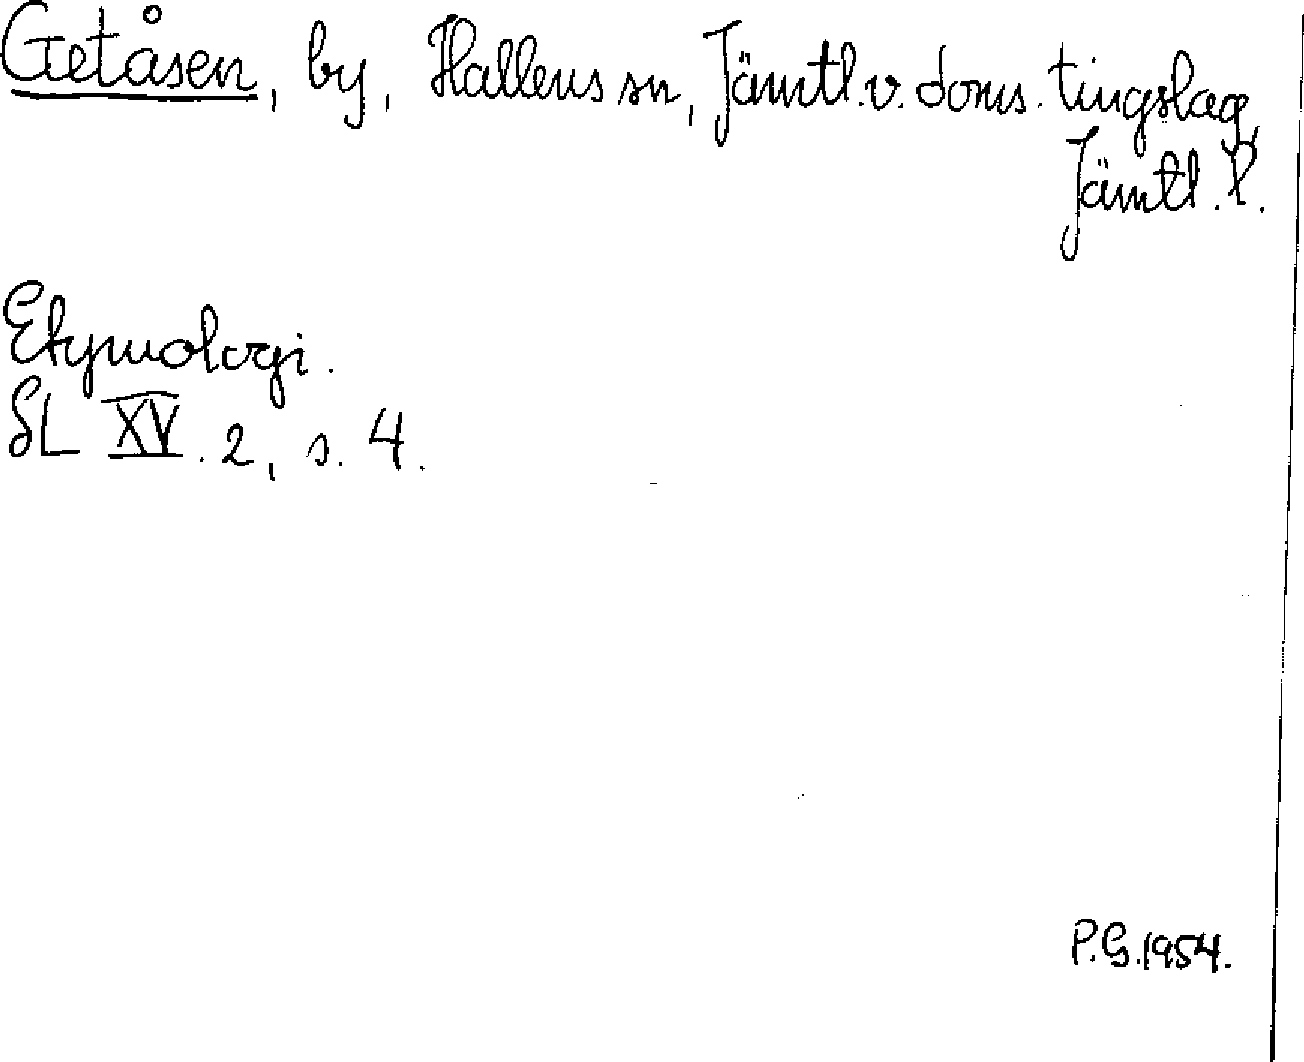 Getåsen, by, Hallens sn, Jämtl.v.doms.tingslag,
Jämtl.l.
Etymologi.
SL XV.2, s.4.
P.G.1954.